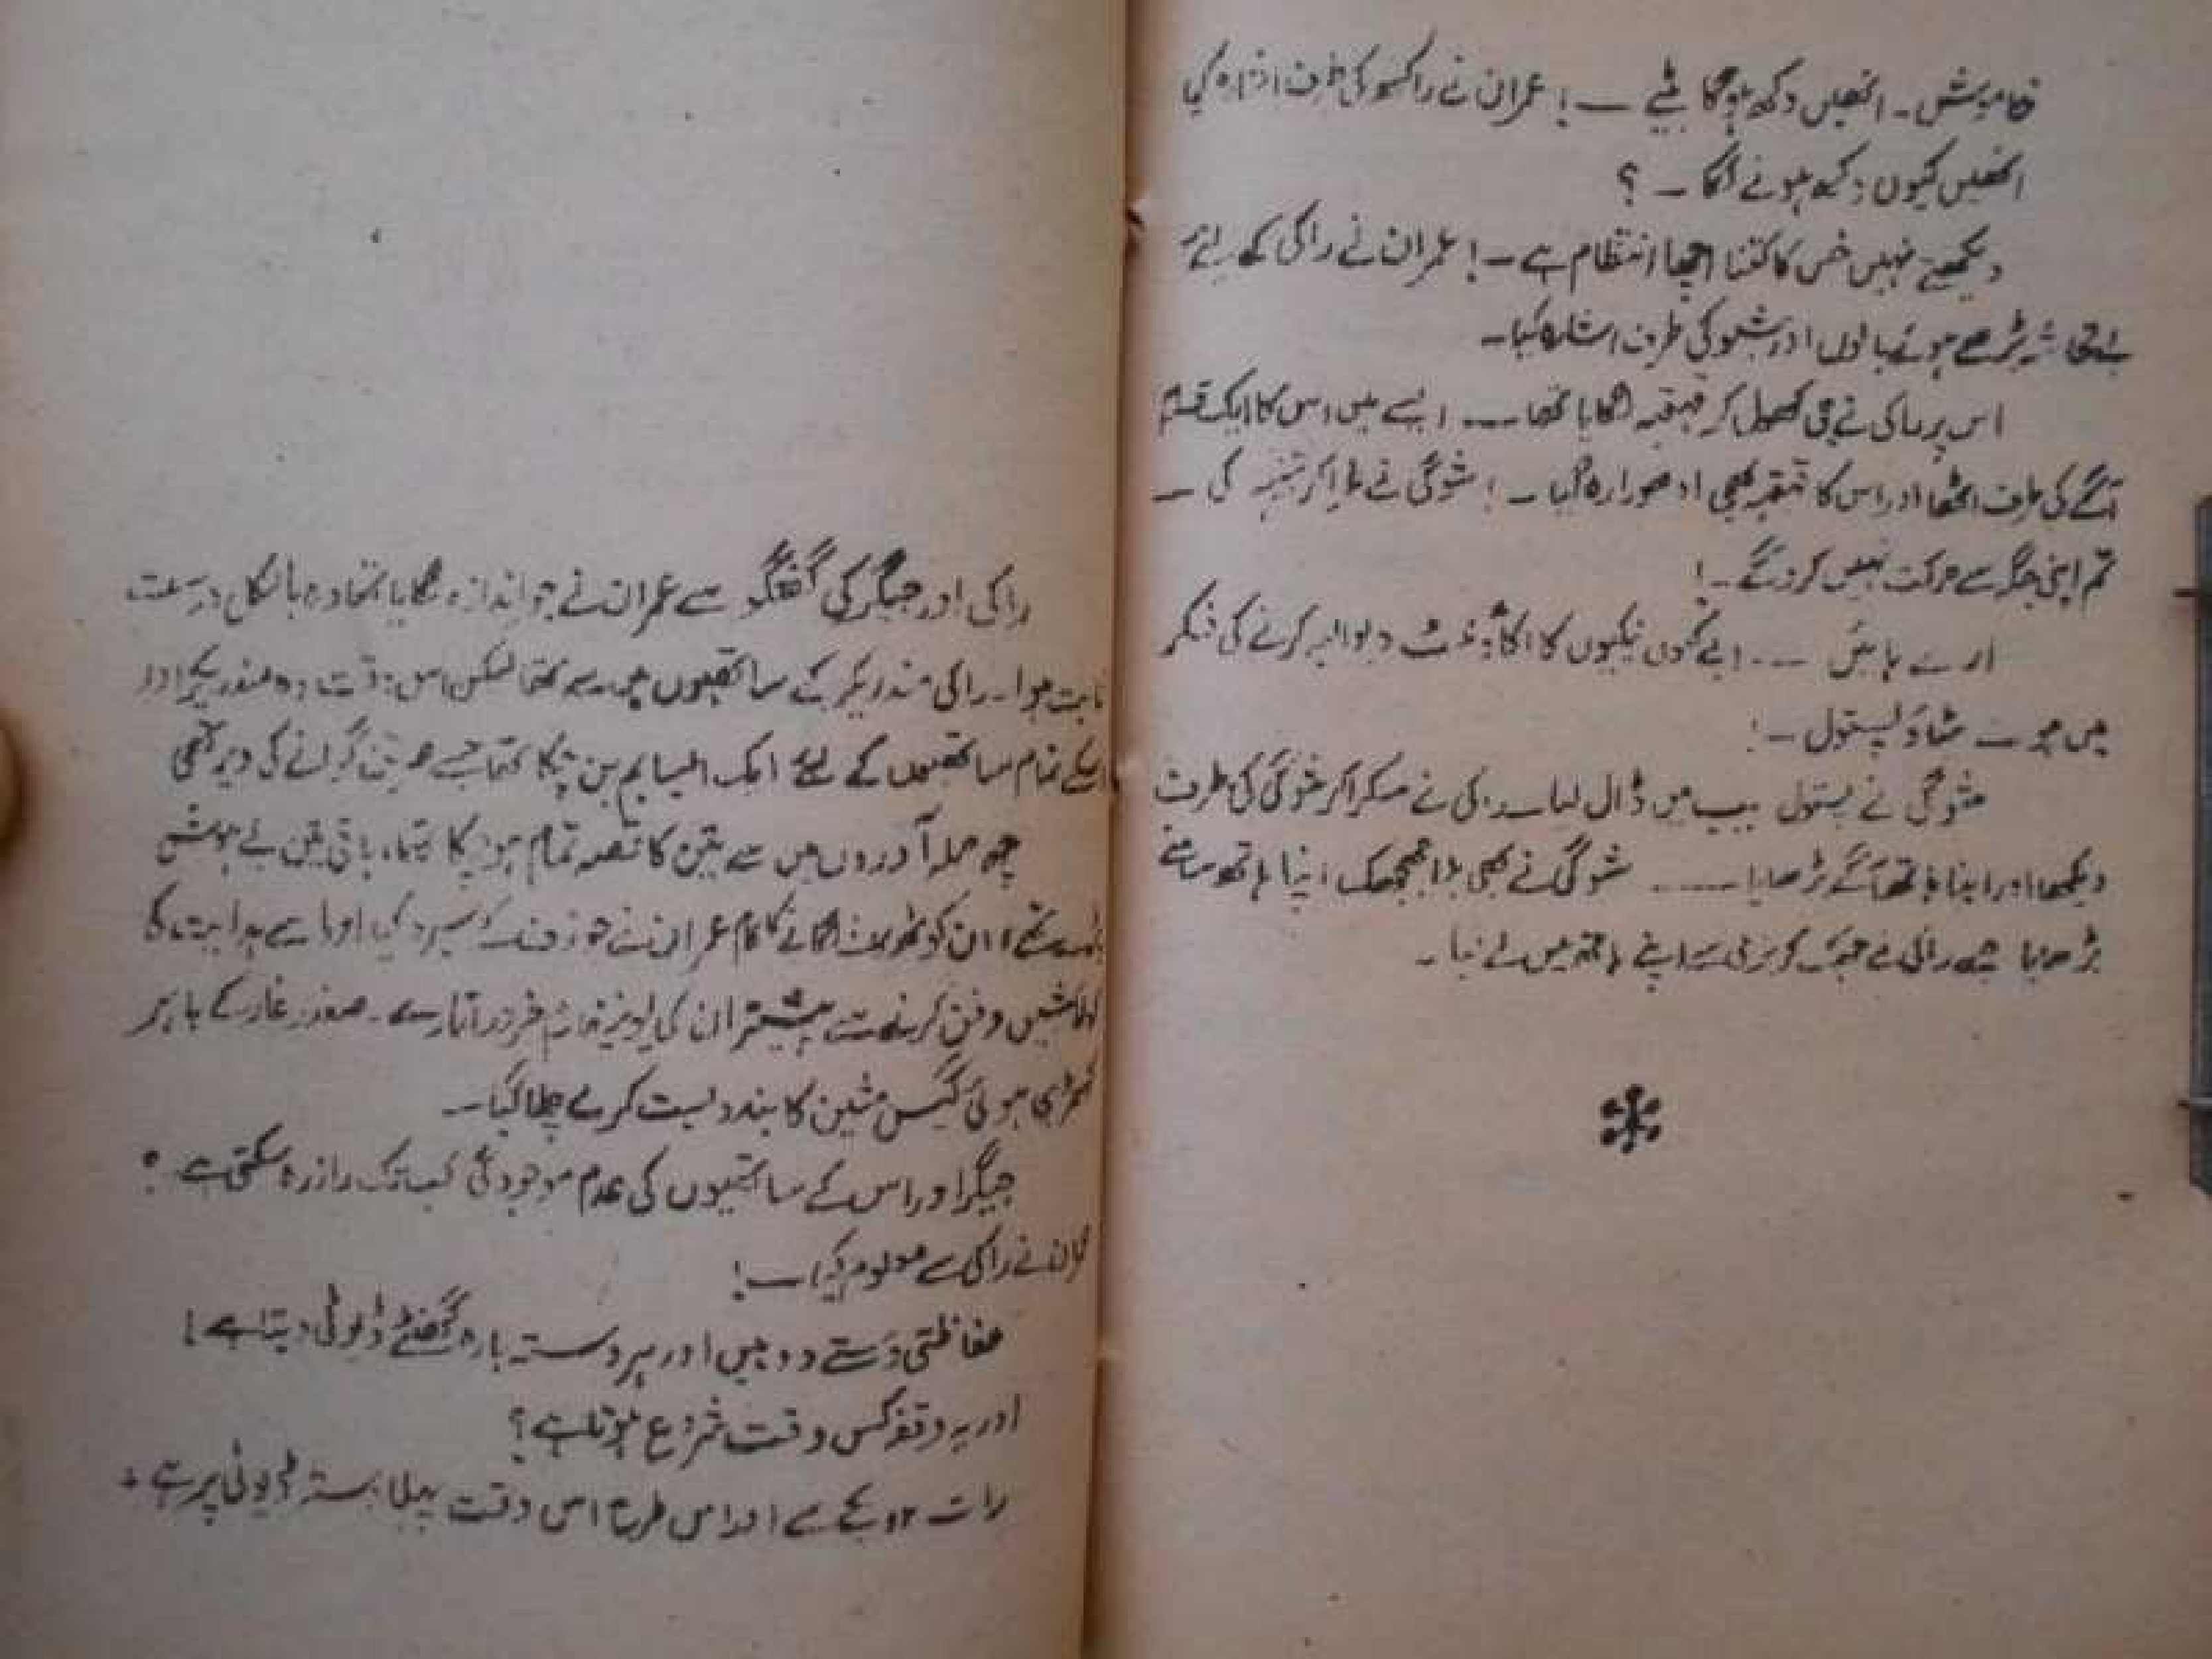 خاموش۔ انھیں دکھ ہوگا بیٹے ——! عمران نے راکسو کی طرف اشارہ کیا
انھیں کیوں دکھ ہونے لگا — ؟
دیکھتے نہیں خس کا کتنا اچھا انتظام ہے —! عمران نے راکی کے لئے
بے تحاشہ بڑھے ہوئے بالوں اور شیو کی طرف اشارہ کیا۔
اس پر راکی نے جی کھول کر قہقہہ لگایا تھا —— ایسے میں اس کا ایک قدم
آگے کی طرف اٹھا اور اس کا قہقہہ بھی ادھورا رہ گیا — ! شوگی نے کر تنبیہہ کی —
تم اپنی جگہ سے حرکت نہیں کرو گے —!
ارے ہائیں ---- ابے کیوں نیکیوں کا اکاؤنٹ دیوالیہ کرنے کی فکر
میں ہو — ہٹاؤ پستول —!
شوگی نے پستول جیب میں ڈال لیا۔ راکی نے مسکرا کر شوگی کی طرف
دیکھا اور اپنا ہاتھ آگے بڑھایا ---- شوگی نے بھی بلا جھجھک اپنا ہاتھ سامنے
بڑھا دیا جسے راکی نے گرمی سے اپنے ہاتھ میں لے لیا۔
راکی اور جیگر کی گفتگو سے عمران نے جو اندازہ لگایا تھا وہ بالکل درست
ثابت ہوا۔ راکی مندریکر کے ساتھیوں میں سے تھا لیکن اس وقت وہ مندریکر اور
اسکے تمام ساتھیوں کے لئے ایک ایسا بم بن چکا تھا جسے گرانے کی دیر تھی
چھ حملہ آوروں میں سے تین کا قصہ تمام ہو چکا تھا، باقی تین بے ہوش
پڑے تھے ان کو لگانے کا کام عمران نے جوزف کے سپرد کیا اور اسے ہدایت کی
کہ لاشیں دفن کرنے سے پیشتر ان کی یونیفارم ضرور اتار لے۔ صفدر غار کے باہر
کھڑی ہوئی گیس مشین کا بندوبست کرنے چلا گیا۔
جیگر اور اس کے ساتھیوں کی عدم موجودگی کب تک راز رہ سکتی ہے ؟
عمران نے راکی سے معلوم کیا —!
حفاظتی دستے دو ہیں اور ہر دستہ بارہ گھنٹے ڈیوٹی دیتا ہے !
اور یہ وقفہ کس وقت شروع ہوتا ہے ؟
رات ۱۲ بجے سے اور اس طرح اس وقت پہلا دستہ ڈیوٹی پر ہے ۔